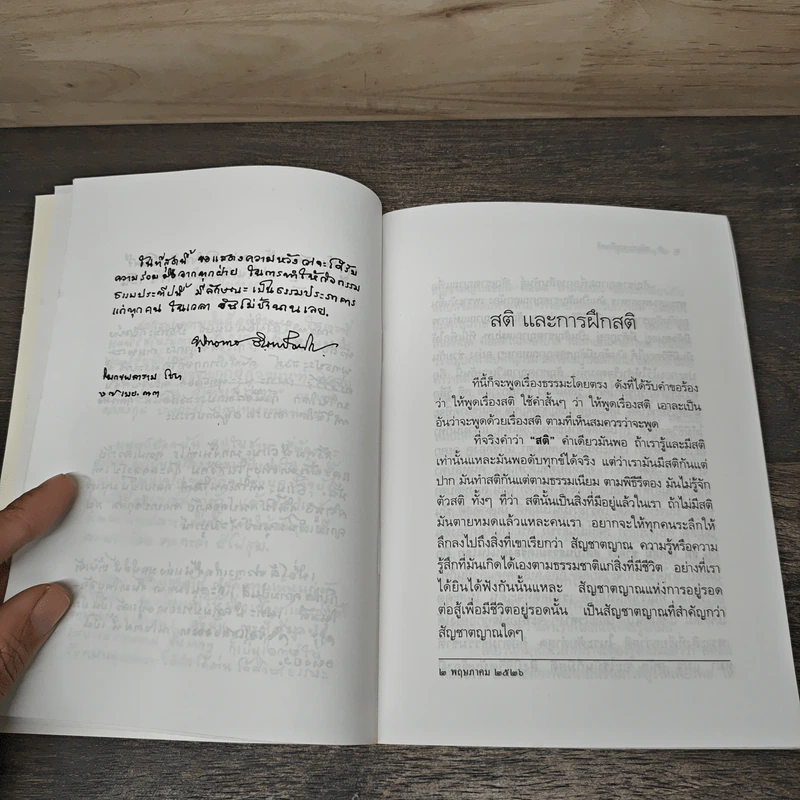 ในที่สุดนี้ ขอแสดงความหวังว่าจะได้รับ
ความร่วมมือจากทุกฝ่าย ในการทำให้กิจกรรม
ธรรมประทีปนี้ มีลักษณะเป็นธรรมประภาคาร
แก่ทุกคน ในเวลา อันไม่ช้านานเลย.
พุทธทาส อินทปัญโญ.
โมกขพลาราม ไชยา
เมย. ๓๓
สติ และการฝึกสติ
ที่นี้ก็จะพูดเรื่องธรรมะโดยตรง ดังที่ได้รับคำขอร้อง
ว่า ให้พูดเรื่องสติ ใช้คำสั้นๆ ว่า ให้พูดเรื่องสติ เอาละเป็น
อันว่าจะพูดด้วยเรื่องสติ ตามที่เห็นสมควรว่าจะพูด
ที่จริงคำว่า "สติ" คำเดียวมันพอ ถ้าเรารู้และมีสติ
เท่านั้นแหละมันพอดับทุกข์ได้จริง แต่ว่าเรามันมีสติกันแต่
ปาก มันทำสติกันแต่ตามธรรมเนียม ตามพิธีรีตอง มันไม่รู้จัก
ตัวสติ ทั้งๆ ที่ว่า สตินั้นเป็นสิ่งที่มีอยู่แล้วในเรา ถ้าไม่มีสติ
มันตายหมดแล้วแหละคนเรา อยากจะให้ทุกคนระลึกให้
ลึกลงไปถึงสิ่งที่เขาเรียกว่า สัญชาตญาณ ความรู้หรือความ
รู้สึกที่มันเกิดได้เองตามธรรมชาติแก่สิ่งที่มีชีวิต อย่างที่เรา
ได้ยินได้ฟังกันนั้นแหละ สัญชาตญาณแห่งการอยู่รอด
ต่อสู้เพื่อมีชีวิตอยู่รอดนั้น เป็นสัญชาตญาณที่สำคัญกว่า
สัญชาตญาณใดๆ
๒ พฤษภาคม ๒๕๒๖